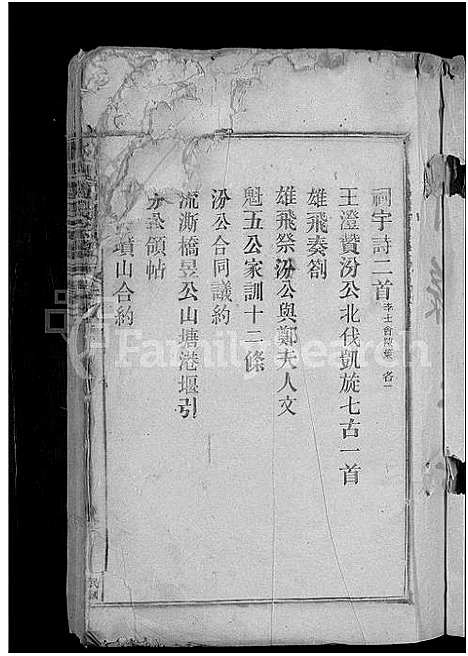 祠宇詩二首 李士會陸葉 各一
王澄贊汾公北伐凱旋七古一首
雄飛奏劄
雄飛祭汾公與鄭夫人文
魁五公家訓十二條
汾公合同議約
流澌橋昱公山塘港堰引
公領帖
墳山合約
民國
FamilySearch